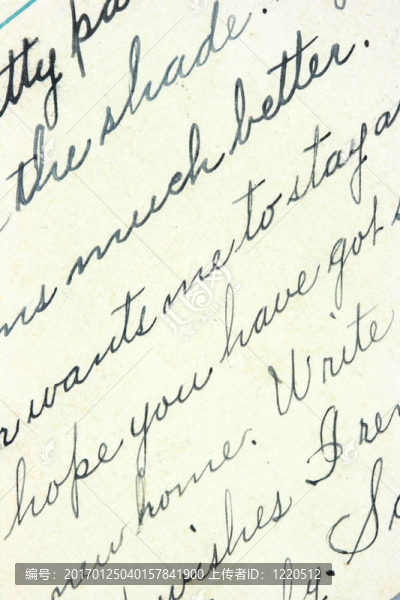 tty pa
the shade.
ns much better.
r wants me to stay a
hope you have got s
new home. Write
wishes Fren
编号：20170125040157841900 上传者ID：1220512